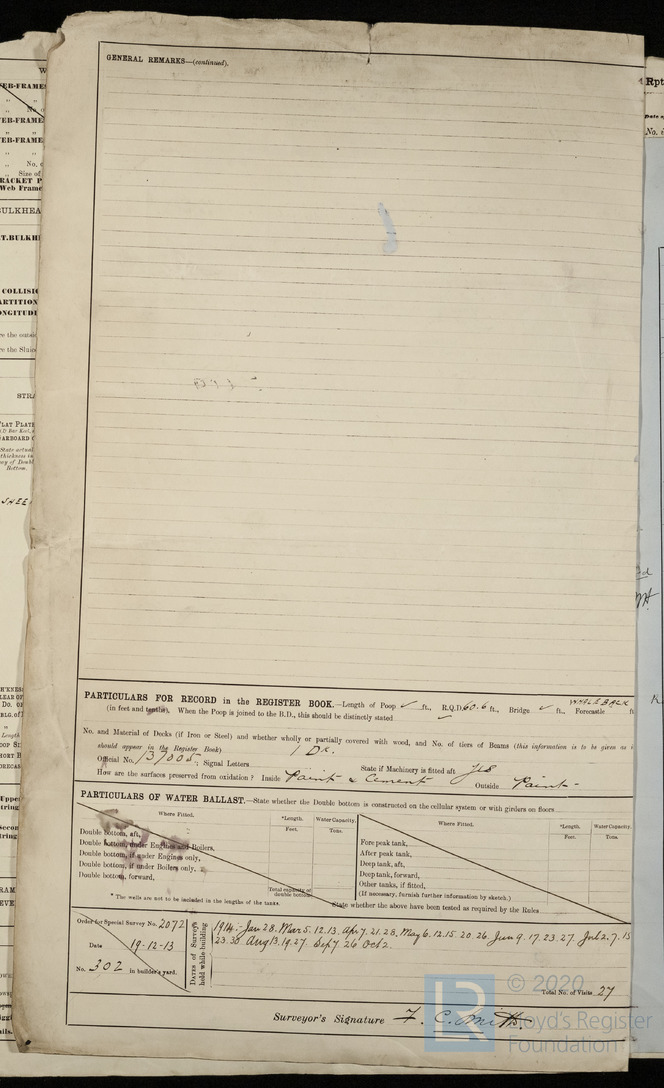 GENERAL REMARKS—(continued).
PARTICULARS FOR RECORD in the REGISTER BOOK.—Length of Poop ✓ ft., R.Q.D. 60.6 ft., Bridge ✓ ft., Forecastle WHALEBACK ft
(in feet and tenths). When the Poop is joined to the B.D., this should be distinctly stated ✓
No. and Material of Decks (if Iron or Steel) and whether wholly or partially covered with wood, and No. of tiers of Beams (this information is to be given as i
should appear in the Register Book) 1 Dk.
Official No. 137005; Signal Letters State if Machinery is fitted aft Yes
How are the surfaces preserved from oxidation? Inside Paint & Cement Outside Paint
PARTICULARS OF WATER BALLAST.—State whether the Double bottom is constructed on the cellular system or with girders on floors
Where Fitted. *Length. Water Capacity. Where Fitted. *Length. Water Capacity.
Feet. Tons. Feet. Tons.
Double bottom, aft, Fore peak tank,
Double bottom, under Engines and Boilers, After peak tank,
Double bottom, if under Engines only, Deep tank, aft,
Double bottom, if under Boilers only, Deep tank, forward,
Double bottom, forward, Other tanks, if fitted,
Total capacity of double bottom (If necessary, furnish further information by sketch.)
* The wells are not to be included in the lengths of the tanks. State whether the above have been tested as required by the Rules
Order for Special Survey No. 2072
Date 19-12-13
No. 302 in builder's yard.
DATES of Surveys held while building
1914:- Jan 28. Mar 5. 12. 13. Apr 7. 21. 28. May 6. 12. 15. 20. 26. Jun 9. 17. 23. 27. Jul 2. 7. 13
23. 30. Aug 13. 19. 27. Sep 7. 26. Oct 2.
Total No. of Visits 27
Surveyor's Signature F. C. Mitts.
© 2020
Lloyd's Register
Foundation
LR